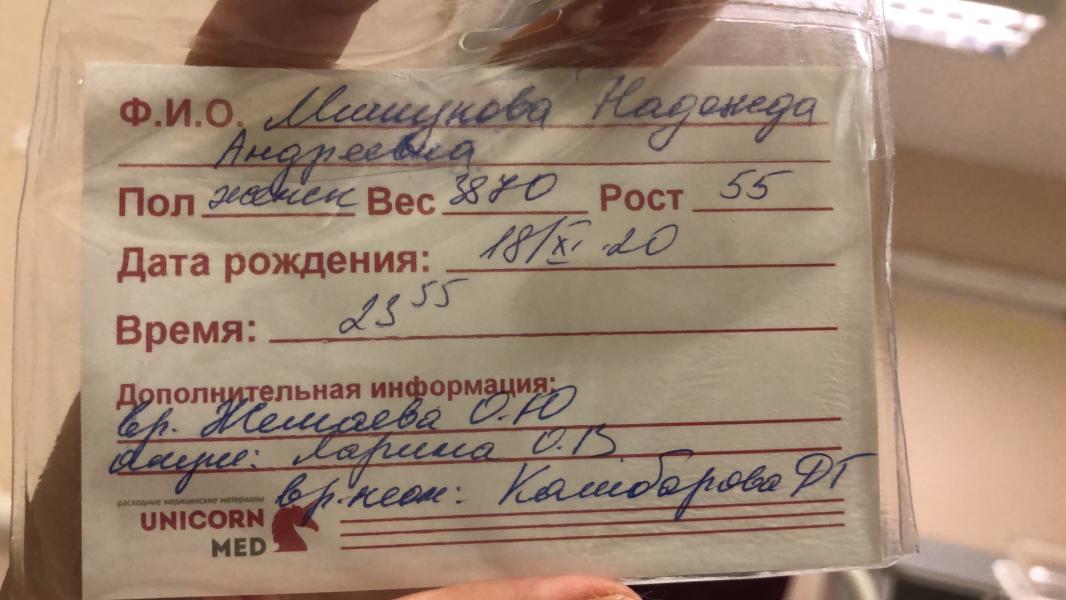 Ф.И.О. Мишукова Надежда
Андреевна
Пол женск Вес 3870 Рост 55
Дата рождения: 18/XI.20
Время: 23 55
Дополнительная информация:
вр. О.Ю
акуш: Ларина О.В
вр.неон: Камбарова ДГ
расходные медицинские материалы
UNICORN
MED